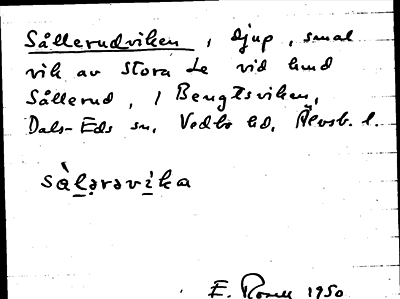 Sållerudviken, djup, smal
vik av Stora Le vid hmd
Sållerud, i Bengtsviken,
Dals-Eds sn, Vedbo hd, Älvsb. l.
sàlərəvika
E. Rosell 1950